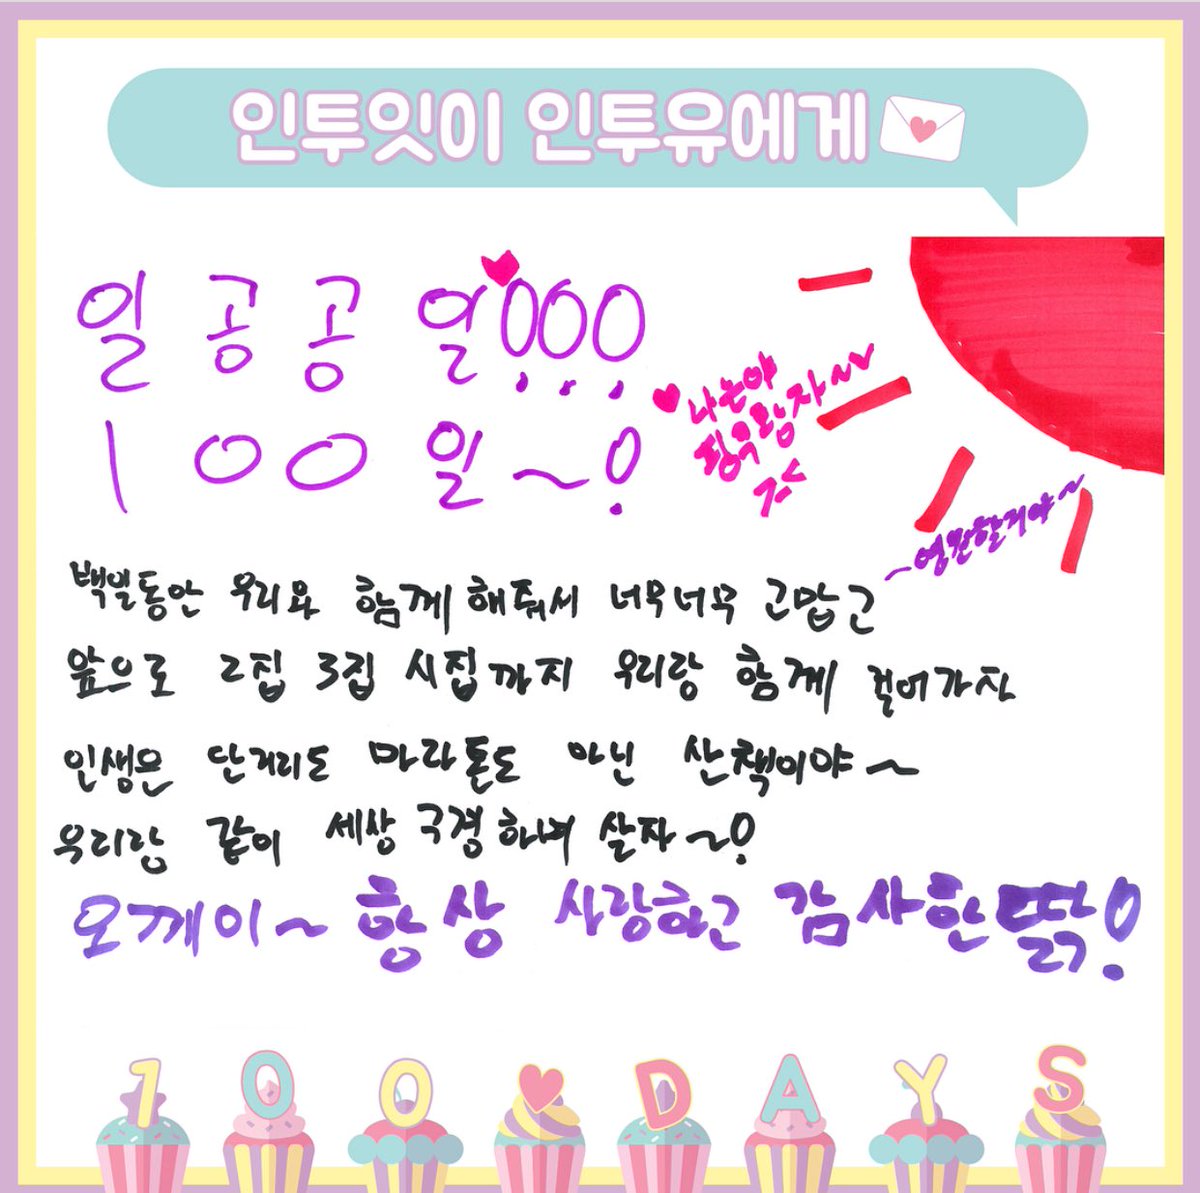 인투잇이 인투유에게
일 공 공 일!!!
100일~!
나는야
~영원할거야~
백일동안 우리와 함께 해줘서 너무너무 고맙고
앞으로 2집 3집 시집까지 우리랑 함께 걸어가자
인생은 단거리도 마라톤도 아닌 산책이야~
우리랑 같이 세상 구경하며 살자~!
오께이~ 항상 사랑하고 감사한 땗!
100 DAYS